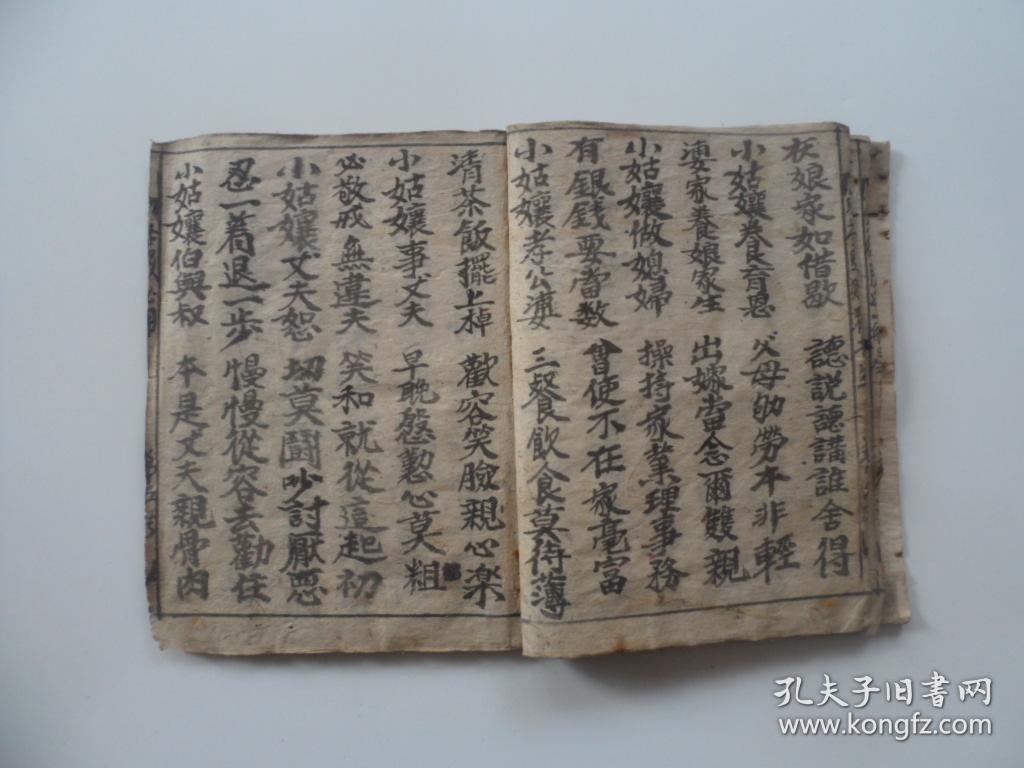 在娘家如借歇 聽説聽講誰舍得
小姑孃養育恩 父母劬勞本非輕
婆家養娘家生 出嫁當念爾雙親
小姑孃做媳婦 操持家業理事務
有銀錢要當数 曾使不在家毫富
小姑孃孝公婆 三餐飲食莫待薄
清茶飯擺上棹 歡容笑臉親心楽
小姑孃事丈夫 早晚慇懃心莫粗
必敬戒無違夫 笑和就從這起初
小姑孃丈夫怒 切莫鬪吵討厭惡
忍一着退一步 慢慢從容去勸住
小姑孃伯與叔 本是丈夫親骨肉
孔夫子旧书网
www.kongfz.com